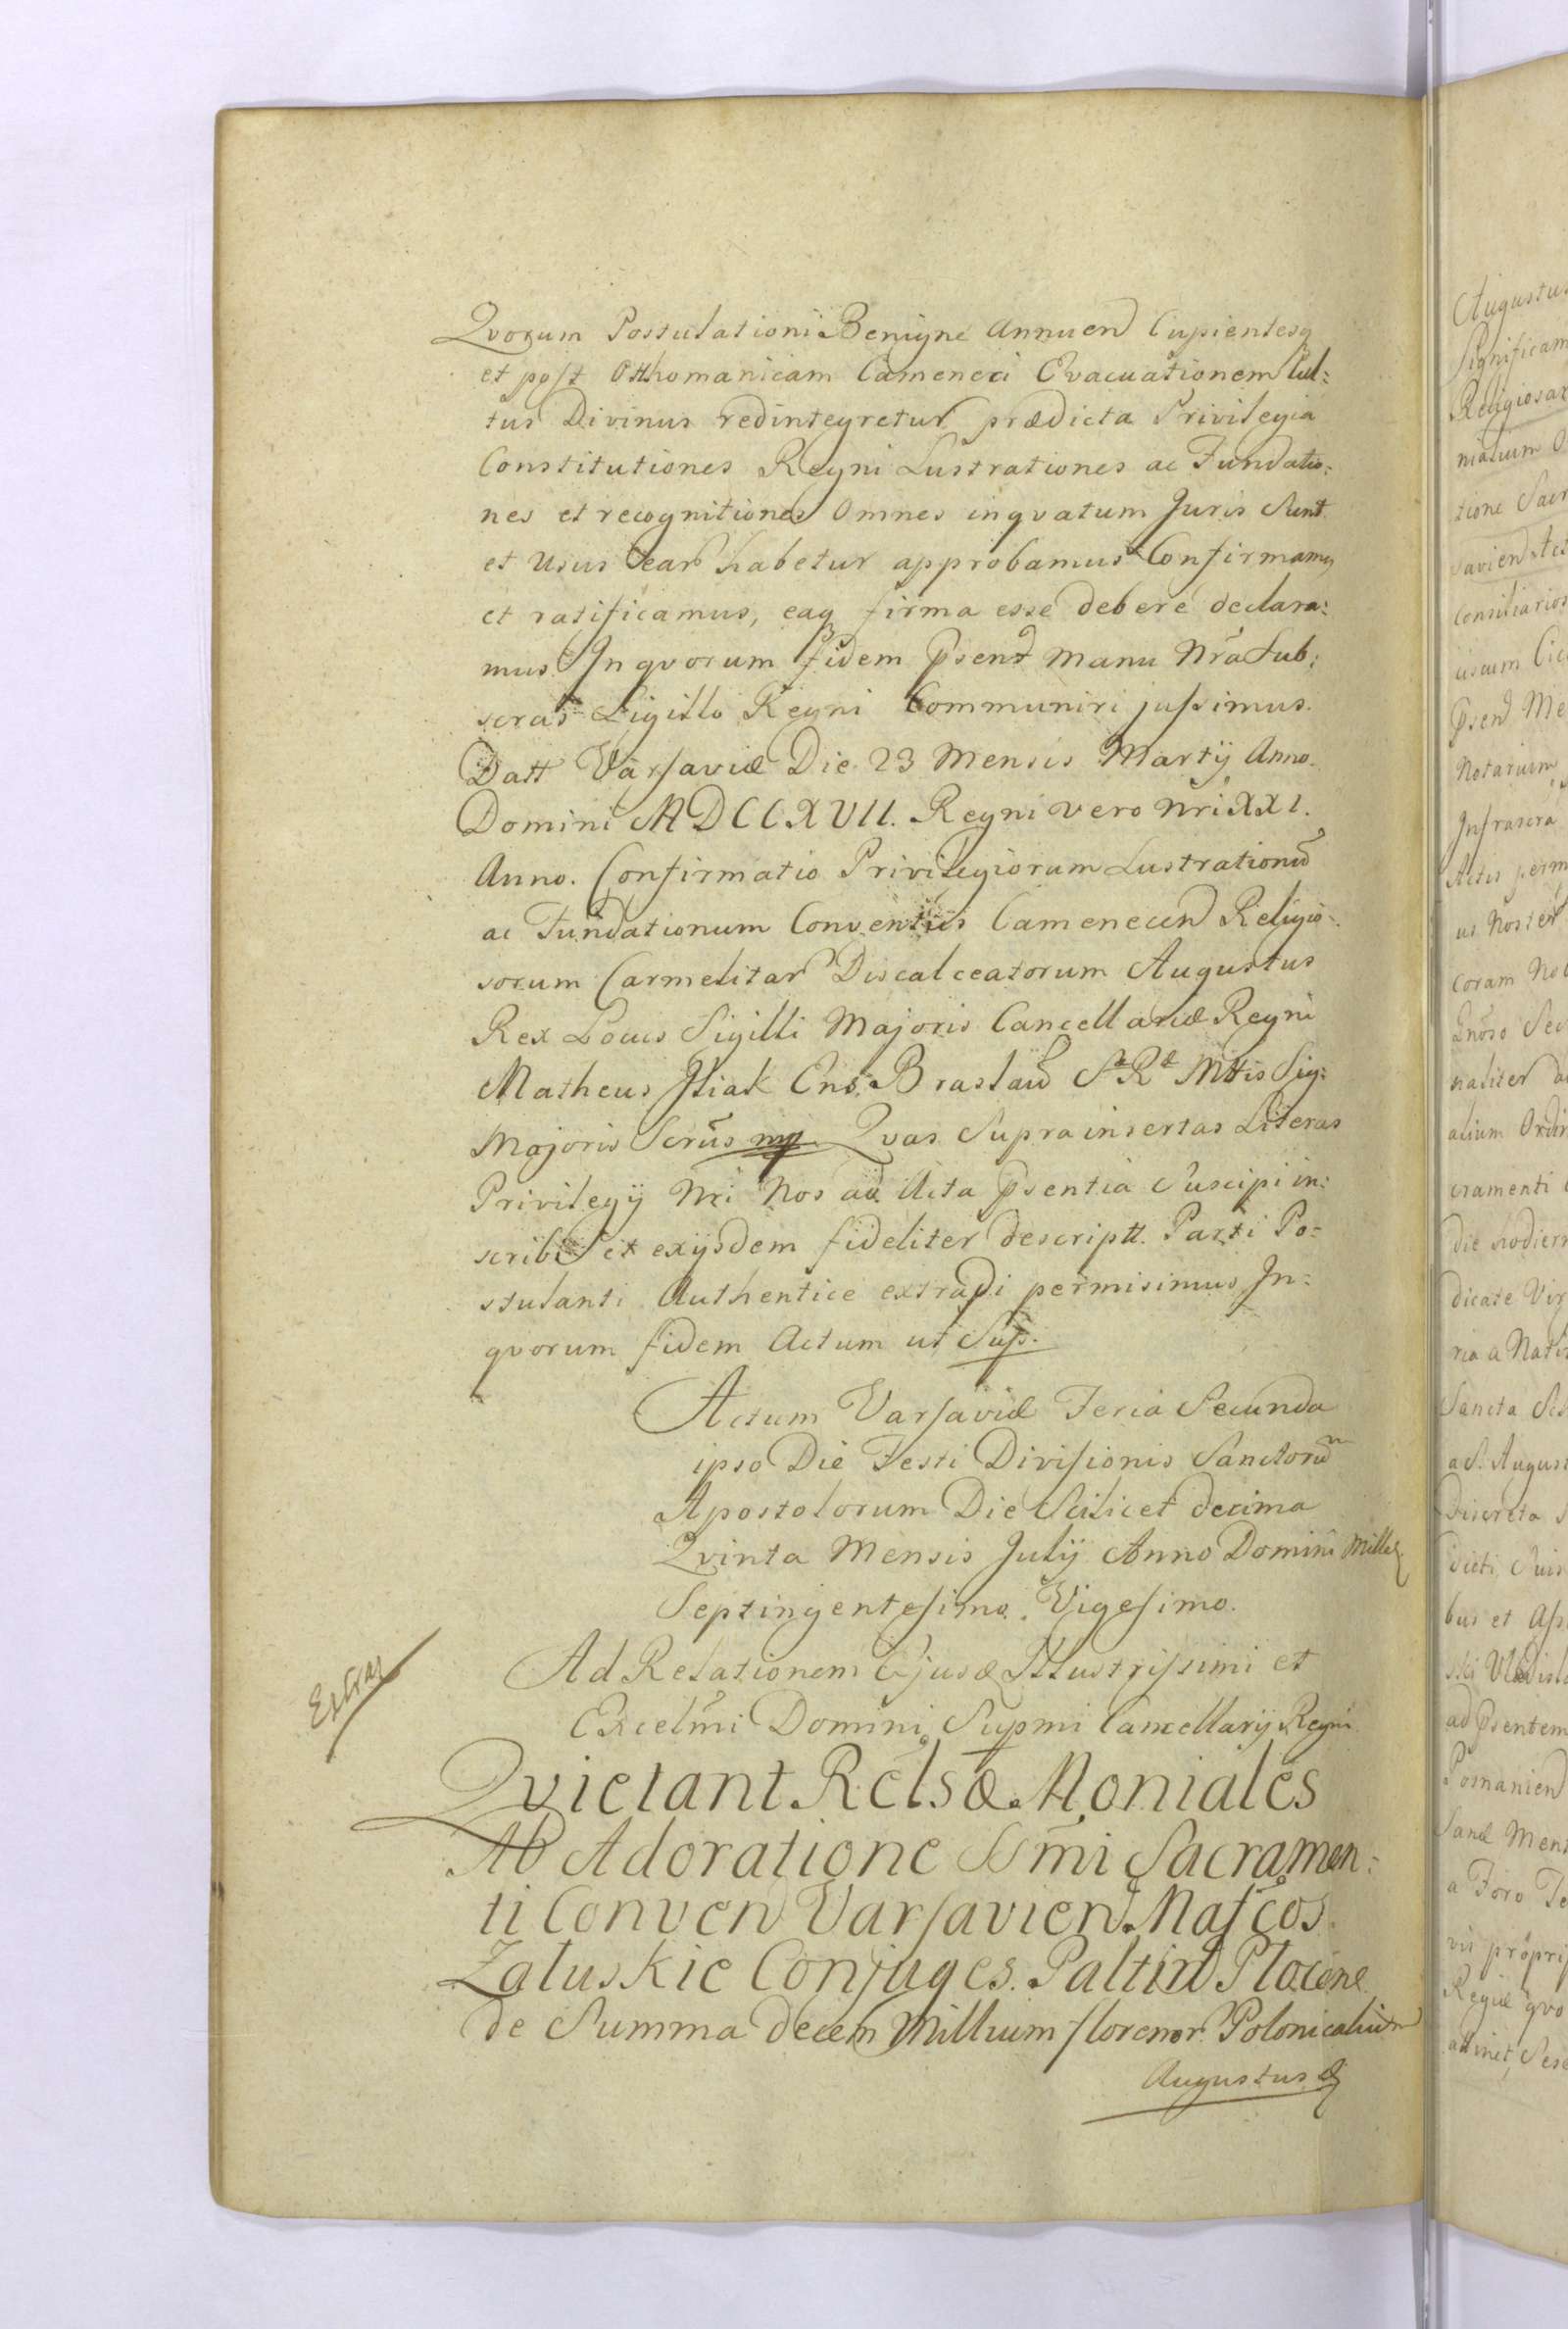 Qvorum Postulationi Benigne Annuen Cupientesq
et post Otthomanicam Cameneci Evacuationem Cul:
tus Divinus redintegretur prædicta Privilegia
Constitutiones Regni Lustrationes ac Fundatio:
nes et recognitiones Omnes inqvatum Juris Sunt
et Usus ear habetur approbamus Confirmamus
et ratificamus, eaq firma esse debere declara:
mus In qvorum fidem Psent manu Nra Sub:
scras Sigillo Regni Communiri jussimus.
Datt Varsaviæ Die 23 Mensis Martij Anno
Domini MDCCXVII. Regni vero Nri XXI.
Anno. Confirmatio Privilegiorum Lustrationu
ac Fundationum Conventus Camenecen Religio:
sorum Carmelitar Discalceatorum Augustus
Rex Locus Sigilli Majoris Cancellariæ Regni
Matheus Iliak Ens. Braslau S Ræ Mttis Sig:
Majoris Scrus mp Qvas Supra insertas Literas
Privilegij Nri Nos ad Acta Psentia Suscipi in:
scribi et exijsdem fideliter descriptt. Parti Po:
stulanti Authentice extradi permisimus In:
qvorum fidem Actum ut Sup.
Actum Varsaviæ Feria Secunda
ipso Die Festi Divisionis Sanctoru
Apostolorum Die Scilicet decima
Qvinta Mensis Julij Anno Domini Milles
Septingentesimo Vigesimo.
Ad Relationem Ejusd Illustrissimi et
Excelmi Domini Supmi Cancellarij Regni
Extrad
Qvietant Relsæ Moniales
Ab Adoratione SSmi Sacramen:
ti Conven Varsavien Mafcos
Zaluskie Conjuges. Paltin Plocene
de Summa decem Millium florenor Polonicalium
Augustus &
Augustus
Significam
Religiosar
nialium O
tione Sacr
Consiliarios
Psend Me
Notarium
Infrascra
Actis perm
us Noster
coram No
naliter
alium Ordin
cramenti
die hodiern
dicate Vir
ria a Nati
Sancta Sc
a S. August
Discreta S
dicti Suis
bus et Ass
ski Vladisla
ad Psentem
Posnanien
Sanæ Ment
a Foro Te
vis proprijs
Regiæ qvo
attinet, Sese